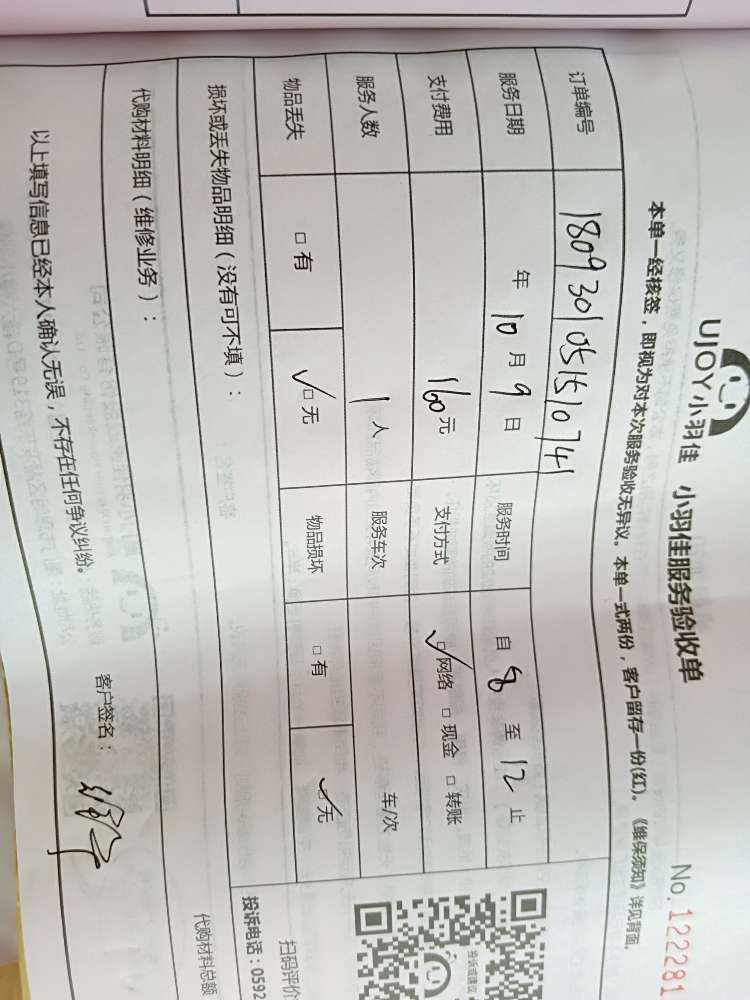 UJOY小羽佳 小羽佳服务验收单 No.122281
本单一经核签，即视为对本次服务验收无异议。本单一式两份，客户留存一份(红)。《维保须知》详见背面。
订单编号 180930105151074
服务日期 年 10 月 9 日 服务时间 自 8 至 12 止
支付费用 160元 支付方式 ☑网络 □现金 □转账
服务人数 1 人 服务车次 车/次
物品丢失 □有 ☑无 物品损坏 □有 ☑无
损坏或丢失物品明细（没有可不填）：
代购材料明细（维修业务）： 代购材料总额
以上填写信息已经本人确认无误，不存在任何争议纠纷。 客户签名：
投诉或建议
扫码评价
投诉电话：0592